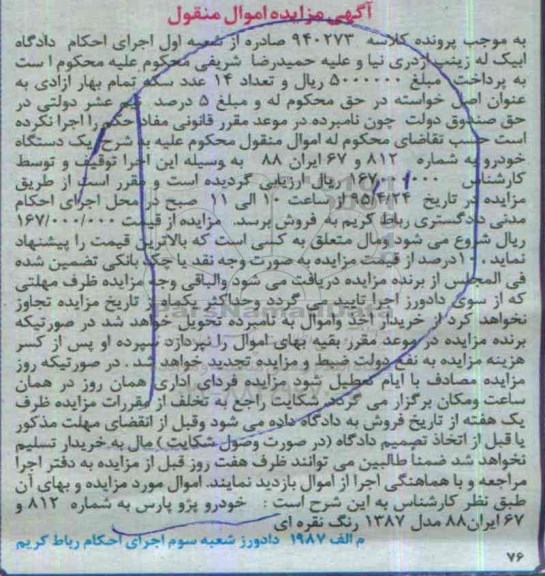 آگهی مزایده اموال منقول
به موجب پرونده کلاسه ۹۴۰۲۷۳ صادره از شعبه اول اجرای احکام دادگاه
ابیک له زینب اژدری نیا و علیه حمیدرضا شریفی محکوم علیه محکوم است
به پرداخت مبلغ ۵۰۰۰۰۰۰ ریال و تعداد ۱۴ عدد سکه تمام بهار ازادی به
عنوان اصل خواسته در حق محکوم له و مبلغ ۵ درصد نیم عشر دولتی در
حق صندوق دولت چون نامبرده در موعد مقرر قانونی مفاد حکم را اجرا نکرده
است حسب تقاضای محکوم له اموال منقول محکوم علیه به شرح یک دستگاه
خودرو به شماره ۸۱۲ و ۶۷ ایران ۸۸ به وسیله این اجرا توقیف و توسط
کارشناس ریال ارزیابی گردیده است و مقرر است از طریق
مزایده در تاریخ ۹۵/۴/۲۴ از ساعت ۱۰ الی ۱۱ صبح در محل اجرای احکام
مدنی دادگستری رباط کریم به فروش برسد. مزایده از قیمت ۱۶۷/۰۰۰/۰۰۰
ریال شروع می شود ومال متعلق به کسی است که بالاترین قیمت را پیشنهاد
نماید. ۱۰درصد از قیمت مزایده به صورت وجه نقد یا چک بانکی تضمین شده
فی المجلس از برنده مزایده دریافت می شود والباقی وجه مزایده ظرف مهلتی
که از سوی دادورز اجرا تایید می گردد وحداکثر یکماه از تاریخ مزایده تجاوز
نخواهد کرد از خریدار اخذ واموال به نامبرده تحویل خواهد شد در صورتیکه
برنده مزایده در موعد مقرر بقیه بهای اموال را نپردازد سپرده او پس از کسر
هزینه مزایده به نفع دولت ضبط و مزایده تجدید خواهد شد. در صورتیکه روز
مزایده مصادف با ایام تعطیل شود مزایده فردای اداری همان روز در همان
ساعت ومکان برگزار می گردد. شکایت راجع به تخلف از مقررات مزایده ظرف
یک هفته از تاریخ فروش به دادگاه داده می شود وقبل از انقضای مهلت مذکور
یا قبل از اتخاذ تصمیم دادگاه (در صورت وصول شکایت) مال به خریدار تسلیم
نخواهد شد ضمنا طالبین می توانند ظرف هفت روز قبل از مزایده به دفتر اجرا
مراجعه و با هماهنگی اجرا از اموال بازدید نمایند. اموال مورد مزایده و بهای آن
طبق نظر کارشناس به این شرح است: خودرو پژو پارس به شماره ۸۱۲ و
۶۷ ایران۸۸ مدل ۱۳۸۷ رنگ نقره ای
م الف ۱۹۸۷ دادورز شعبه سوم اجرای احکام رباط کریم
۷۶